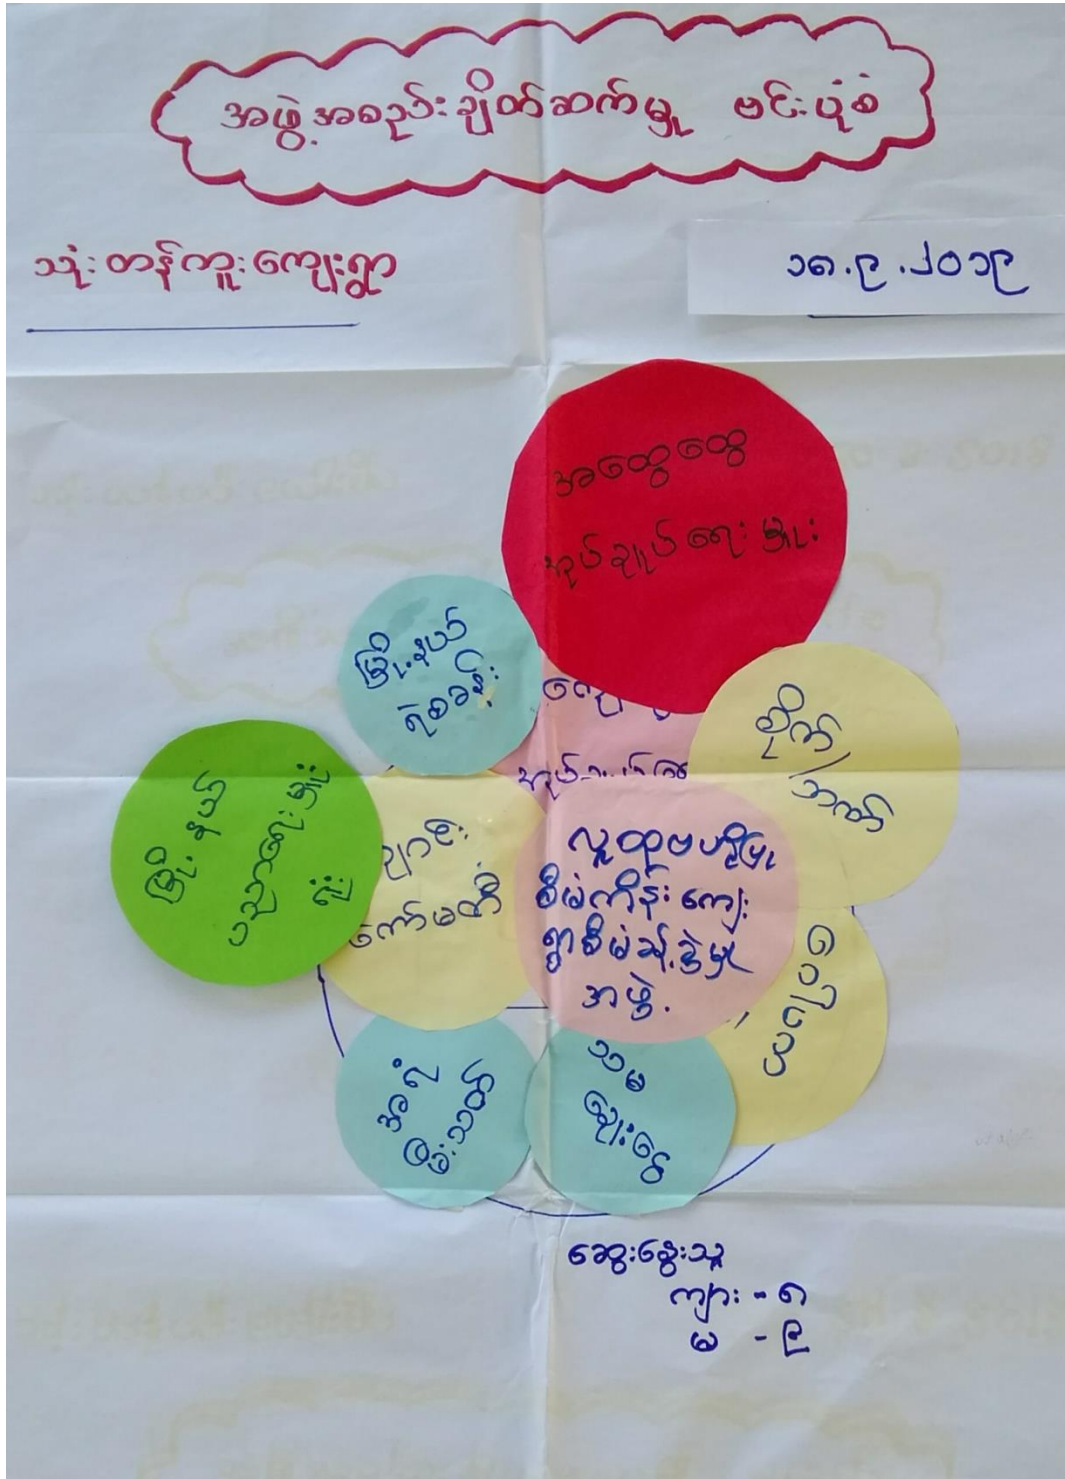 အဖွဲ့အစည်းချိတ်ဆက်မှု ဗင်းပုံစံ
သုံးတန်ကူးကျေးရွာ
၁၈.၉.၂၀၁၉
အထွေထွေ
အုပ်ချုပ်ရေးမှူး
မြို့နယ်
ရဲစခန်း
ကျေး
အုပ်ချုပ်ရေ
စိုက်/
ဘဏ်
မြို့နယ်
ပညာရေးမှူး
ရုံး
ကျောင်း
ကော်မတီ
လူထုဗဟိုပြု
စီမံကိန်းကျေး
ရွာစီမံခန့်ခွဲမှု
အဖွဲ့.
ဂေါပက
အရံ
မီးသတ်
သမ
ချေးငွေ
ဆွေးနွေးသူ
ကျား - ၈
မ - ၉